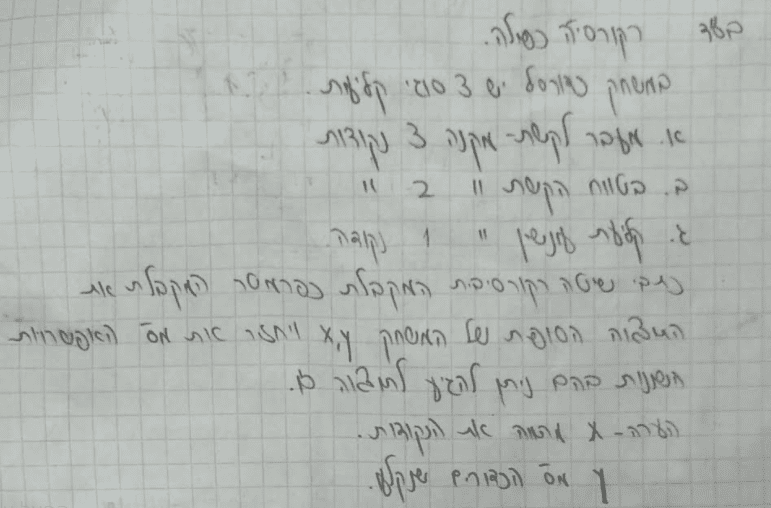 בס״ד רקורסיה כפולה.
במשחק כדורסל יש 3 סוגי קליעות.
א. מעבר לקשת - מקנה 3 נקודות
ב. בטווח הקשת " 2 "
ג. קליעת עונשין " 1 נקודה
כתבי שיטה רקורסיבית המקבלת כפרמטר המקבלת את
התוצאה הסופית של המשחק x,y ויחזיר את מס' האפשרויות
השונות בהם ניתן להגיע לתוצאה זו.
הערה - x מהווה את הנקודות.
y מס' הכדורים שנקלעו.